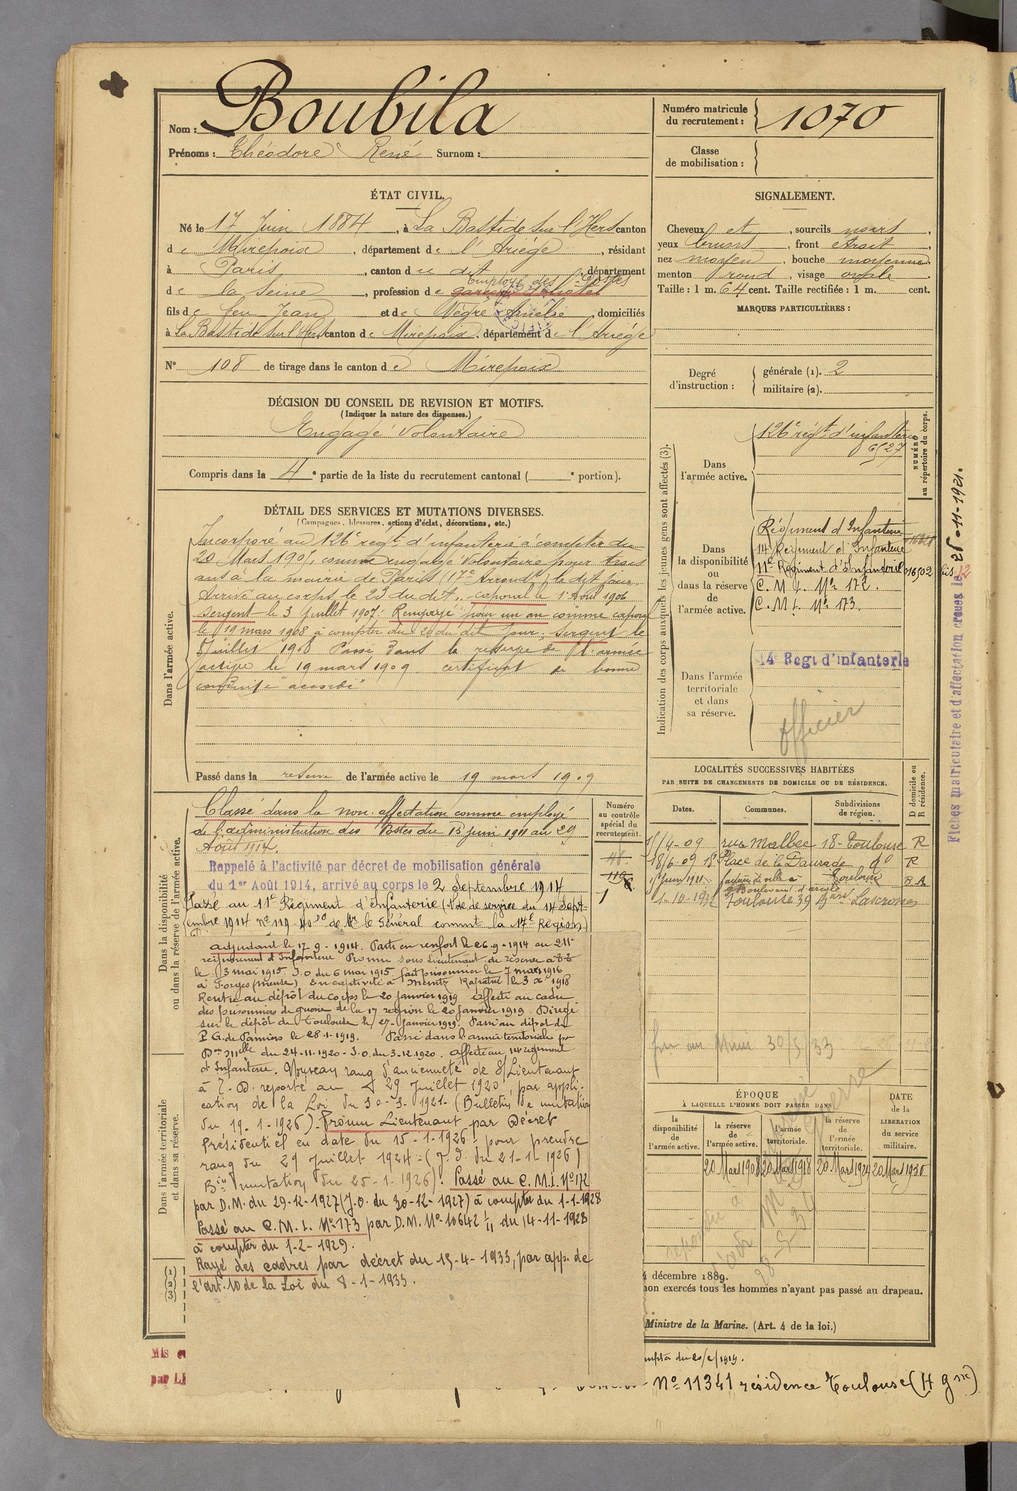 Nom : Boubila
Prénoms : Théodore René Surnom :
Numéro matricule du recrutement : 1070
Classe de mobilisation :
ÉTAT CIVIL.
Né le 17 Juin 1884, à La Bastide sur l'Hers canton
de Mirepoix, département de l'Ariège, résidant
à Paris, canton du dit, département
employé des Postes
de la Seine, profession de garçon
fils de feu Jean et de Nègre Amélie, domiciliés
à La Bastide sur l'Hers canton de Mirepoix, département de l'Ariège
N° 108 de tirage dans le canton de Mirepoix
SIGNALEMENT.
Cheveux et, sourcils noirs,
yeux bruns, front étroit,
nez moyen, bouche moyenne
menton rond, visage ovale.
Taille : 1 m. 64 cent. Taille rectifiée : 1 m. cent.
MARQUES PARTICULIÈRES :
Degré d'instruction : générale (1). 2
militaire (2).
DÉCISION DU CONSEIL DE REVISION ET MOTIFS.
(Indiquer la nature des dispenses.)
Engagé Volontaire
Compris dans la 4e partie de la liste du recrutement cantonal ( e portion).
DÉTAIL DES SERVICES ET MUTATIONS DIVERSES.
(Campagnes, blessures, actions d'éclat, décorations, etc.)
Dans l'armée active.
Incorporé au 126e régt d'infanterie à compter du
20 Mars 190, comme engagé Volontaire pour trois
ans à la mairie de Paris (17e Arrondt) le dit jour.
Arrivé au corps le 23 du dit, caporal le 1 Août 1906
Sergent le 3 Juillet 1907. Rengagé pour un an comme caporal
le 19 mars 1908 à compter du 20 du dit jour. Sergent le
Juillet 1908 Passé dans la réserve de l'armée
active le 19 mars 1909 certificat de bonne
conduite "accordé"
Passé dans la réserve de l'armée active le 19 mars 1909
Indication des corps auxquels les jeunes gens sont affectés (3).
NUMÉRO au répertoire du corps.
Dans l'armée active.
126e régt d'infanterie
6527
Dans la disponibilité ou dans la réserve de l'armée active.
Régiment d'Infanterie
14e Régiment d'Infanterie
11e Régiment d'Infanterie 016502 bis 12
C. M. I. N° 172.
C. M. I. N° 173.
Dans l'armée territoriale et dans sa réserve.
14e Regt d'Infanterie
officier
Fiches matriculaire et d'affectation créées le 25-11-1921.
LOCALITÉS SUCCESSIVES HABITÉES
PAR SUITE DE CHANGEMENTS DE DOMICILE OU DE RÉSIDENCE.
D domicile ou R résidence.
Dates. Communes. Subdivisions de région.
5/4-09 rue Malbec 18 - Toulouse R
18/6-09 18 Place de la Daurade do R
1 Juin 1911 Toulouse
Toulouse 39
Dans la disponibilité ou dans la réserve de l'armée active.
Numéro au contrôle spécial du recrutement.
Classé dans la non affectation comme employé
de l'administration des Postes du 15 juin 1911 au 29
Août 1914.
Rappelé à l'activité par décret de mobilisation générale
du 1er Août 1914, arrivé au corps le 2 Septembre 1914
Passé au 11e Régiment d'Infanterie (Note de service du 14 Sept-
embre 1914 N° 119 de Mr le Général commt la 17e Région)
adjudant le 17-9-1914. Parti en renfort le 26-9-1914 au 211e
régiment d'Infanterie Promu sous-lieutenant de réserve à TT
le 3 mai 1915 J.O du 6 mai 1915 fait prisonnier le 7 mars 1916
à Forges (Meuse) En captivité à Rapatrié le 3 Xbre 1918
Rentré au dépôt du corps le 20 janvier 1919 affecté au cadre
des prisonniers de guerre de la 17e région le 20 janvier 1919. Dirigé
sur le dépôt de Toulouse le 27 Janvier 1919. Passé au dépôt de
P.G. de Pamiers le 28-1-1919. Passé dans l'armée territoriale par
Don Mlle du 24-11-1920 - J.O. du 3-12-1920. Affecté au 14e régiment
d'Infanterie. Nouveau rang d'ancienneté de S/Lieutenant
à T. D. reporté au 29 Juillet 1920 par appli-
cation de la Loi du 30-3-1921 (Bulletin de mutation
du 19-1-1926). Promu Lieutenant par Décret
Présidentiel en date du 15-1-1926 pour prendre
rang du 29 Juillet 1924 (J.O. du 21-1-1926)
Bin mutation du 25-1-1926). Passé au C.M.I. N° 172
par D.M. du 29-12-1927 (J.O. du 30-12-1927) à compter du 1-1-1928
Passé au C.M.I. N° 173 par D.M. N° 10642 1/11 du 14-11-1928
à compter du 1-2-1929.
Rayé des cadres par décret du 15-4-1933, par app. de
l'art. 10 de la Loi du 8-1-1933.
Dans l'armée territoriale et dans sa réserve.
(1)
(2)
(3)
30/5/33
ÉPOQUE
À LAQUELLE L'HOMME DOIT PASSER DANS
la disponibilité de l'armée active.
la réserve de l'armée active.
l'armée territoriale.
la réserve de l'armée territoriale.
DATE de la LIBÉRATION du service militaire.
20 Mars 1908 20 Mars 1918 20 Mars 1924 20 Mars 1930
28-5-34
décembre 1889.
non exercés tous les hommes n'ayant pas passé au drapeau.
Ministre de la Marine. (Art. 4 de la loi.)
Mis
par
N° 11341 résidence Toulouse (H Gne)